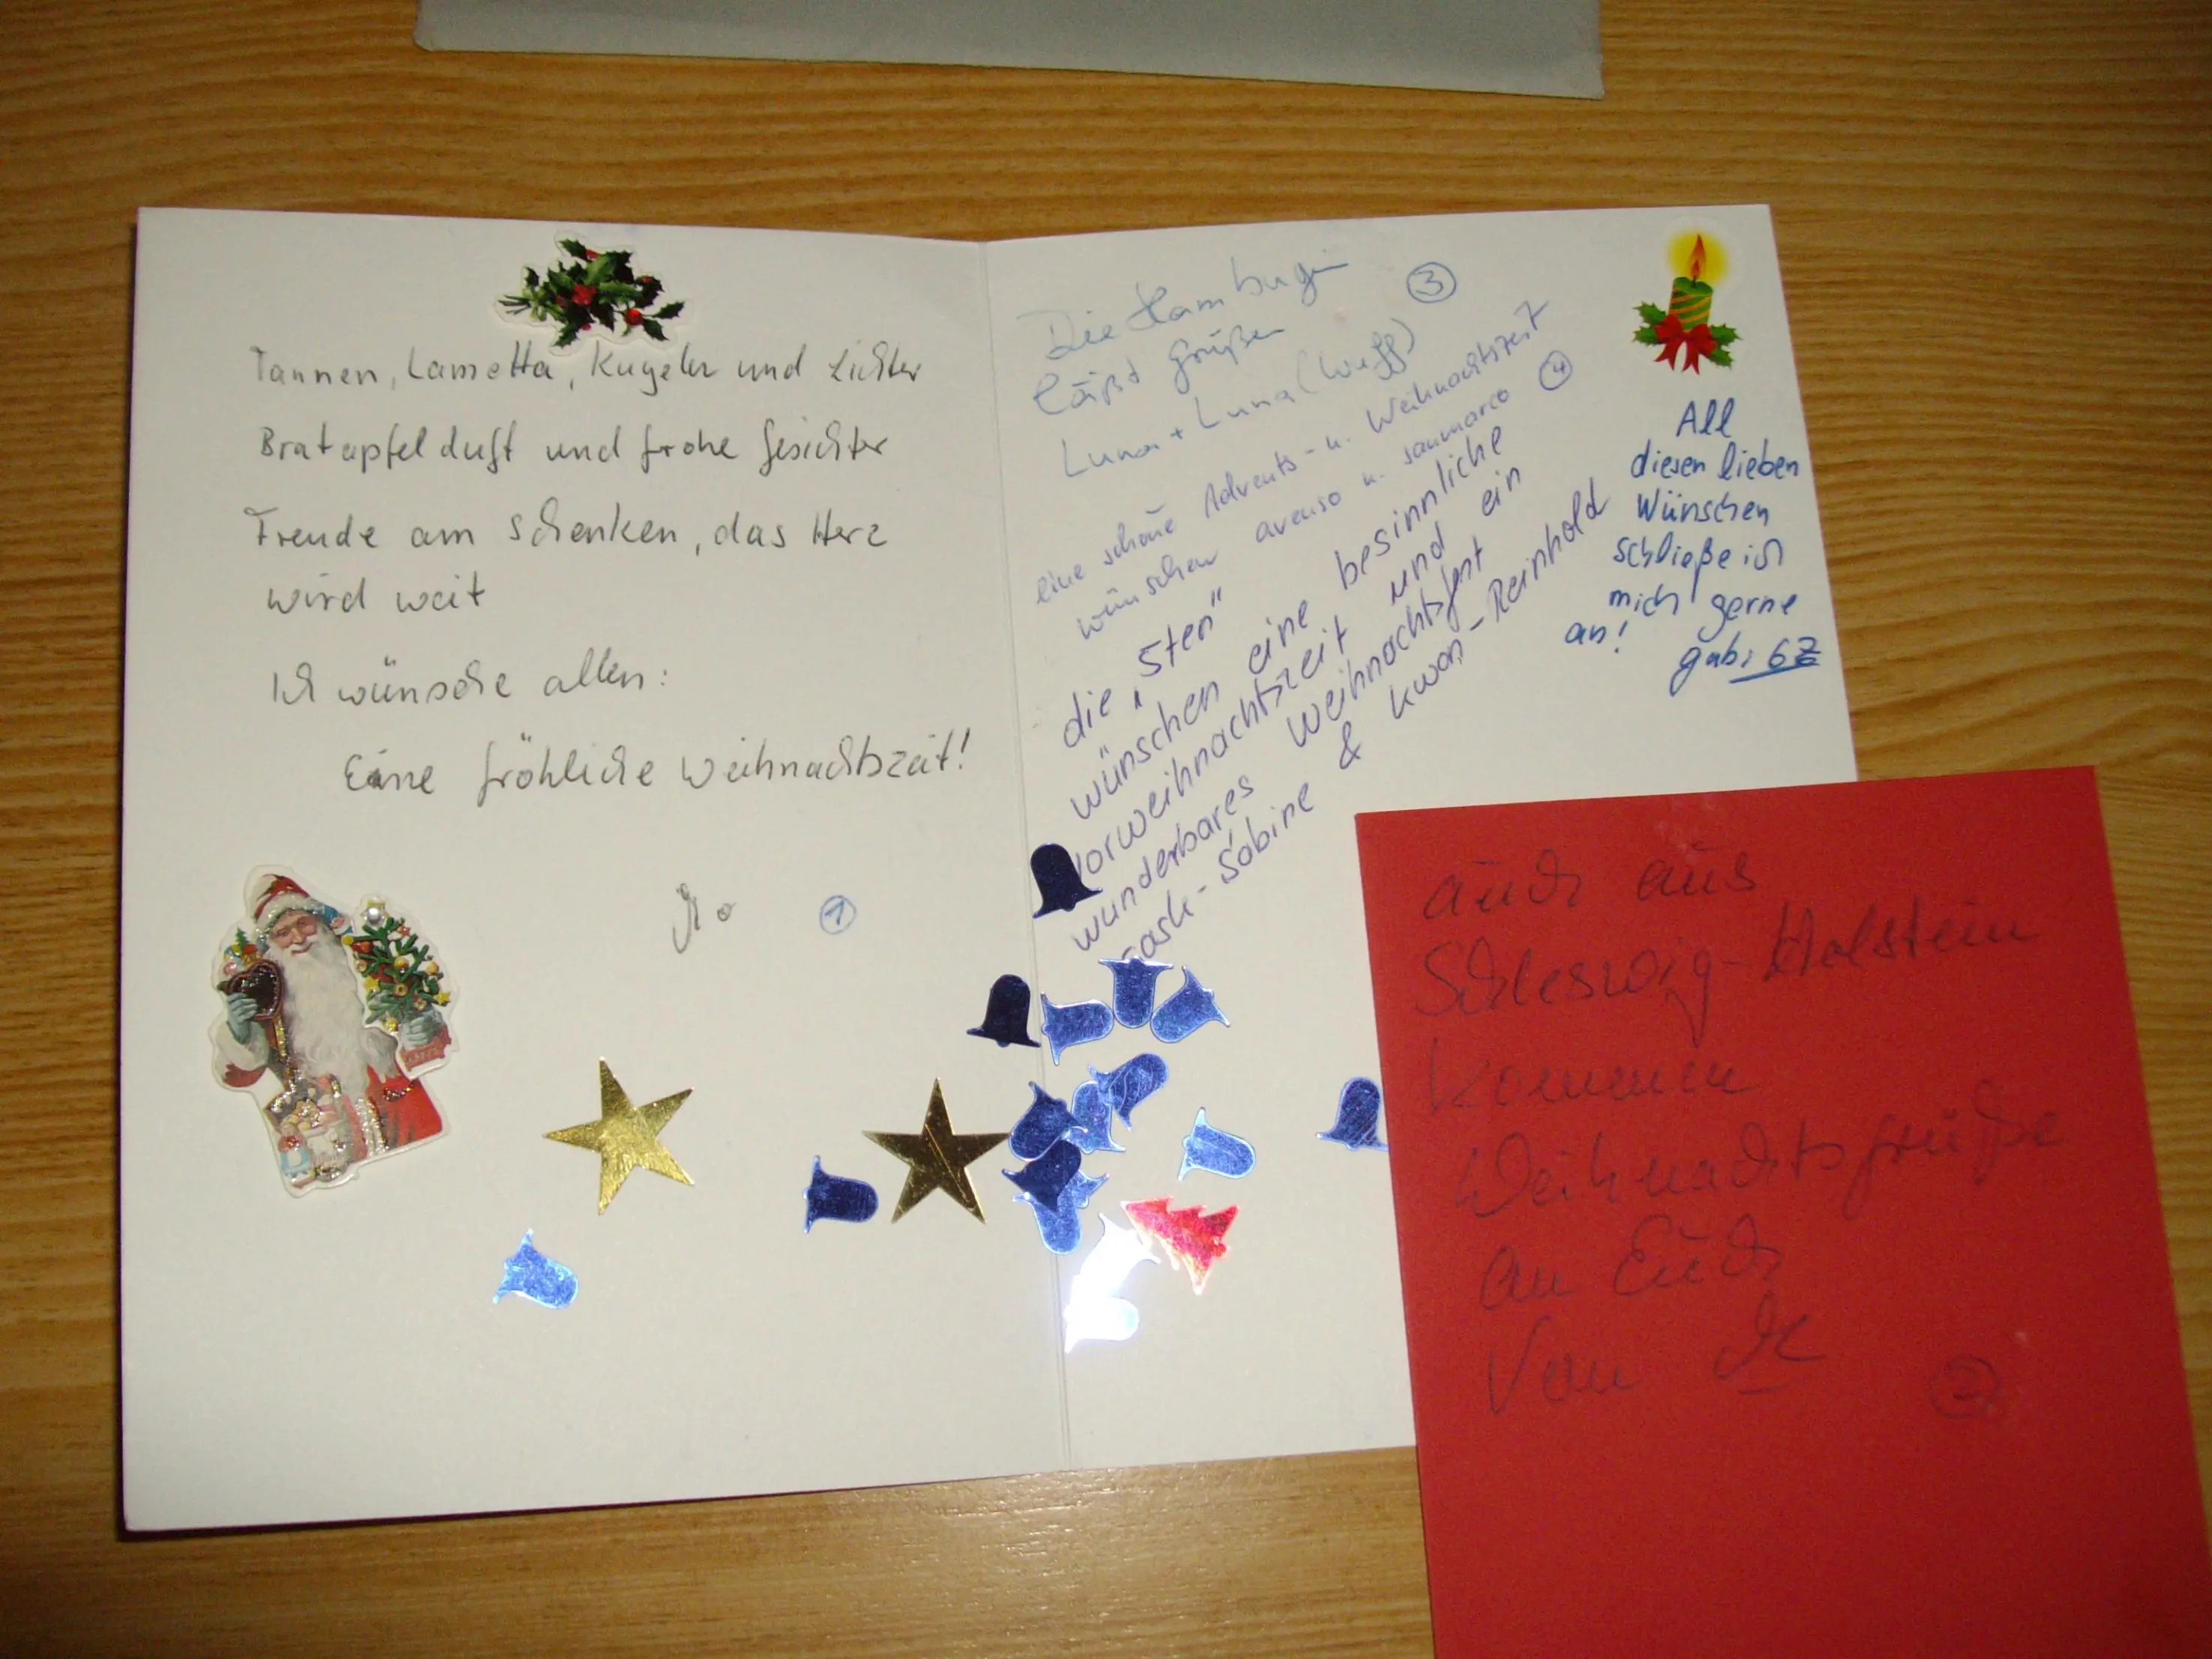 Tannen, Lametta, Kugeln und Lichter
Bratapfelduft und frohe Gesichter
Freude am Schenken, das Herz
wird weit
Ich wünsche allen:
Eine fröhliche Weihnachtszeit!
1
Die Hamburgerin
läßt grüßen
3
Luna + Luna (Wuff)
eine schöne Advents- u. Weihnachtszeit
wünschen avenso u. sanmarco
4
die "5ten"
wünschen eine besinnliche
Vorweihnachtszeit und ein
wunderbares Weihnachtsfest
Sabine & kwon-Reinhold
All
diesen lieben
Wünschen
schließe ich
mich gerne
an!
gabi 67
auch aus
Schleswig-Holstein
kommen
Weihnachtsgrüße
an Euch
Von
2